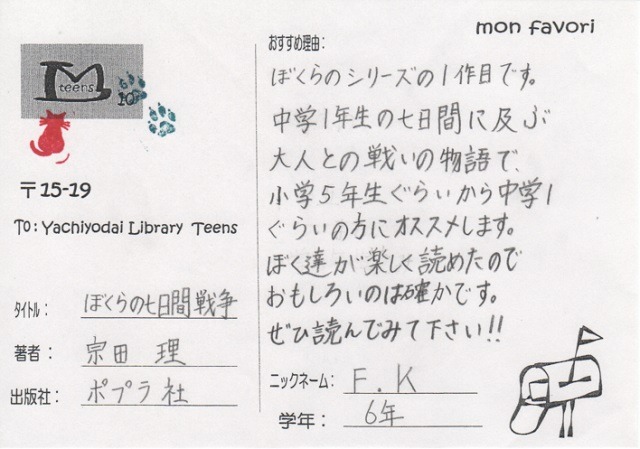 mon favori
M
teens
10
〒15-19
To: Yachiyodai Library Teens
タイトル: ぼくらの七日間戦争
著者: 宗田 理
出版社: ポプラ社
おすすめ理由:
ぼくらのシリーズの1作目です。
中学1年生の七日間に及ぶ
大人との戦いの物語で、
小学5年生ぐらいから中学1
ぐらいの方にオススメします。
ぼく達が楽しく読めたので
おもしろいのは確かです。
ぜひ読んでみて下さい!!
ニックネーム: F.K
学年: 6年